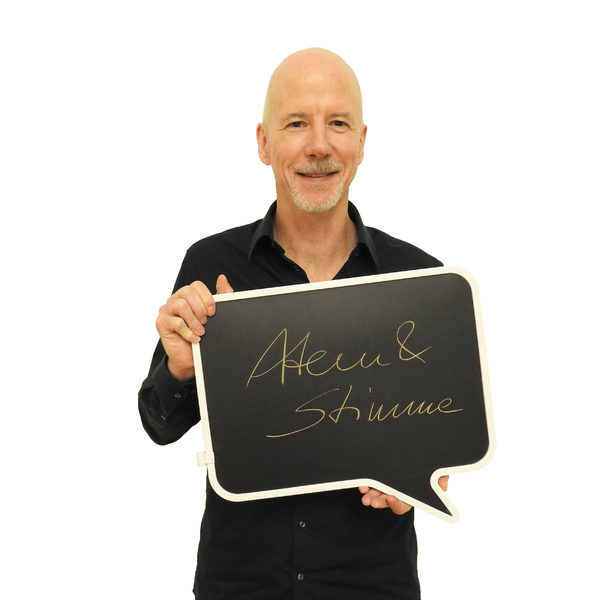 Atem &
Stimme